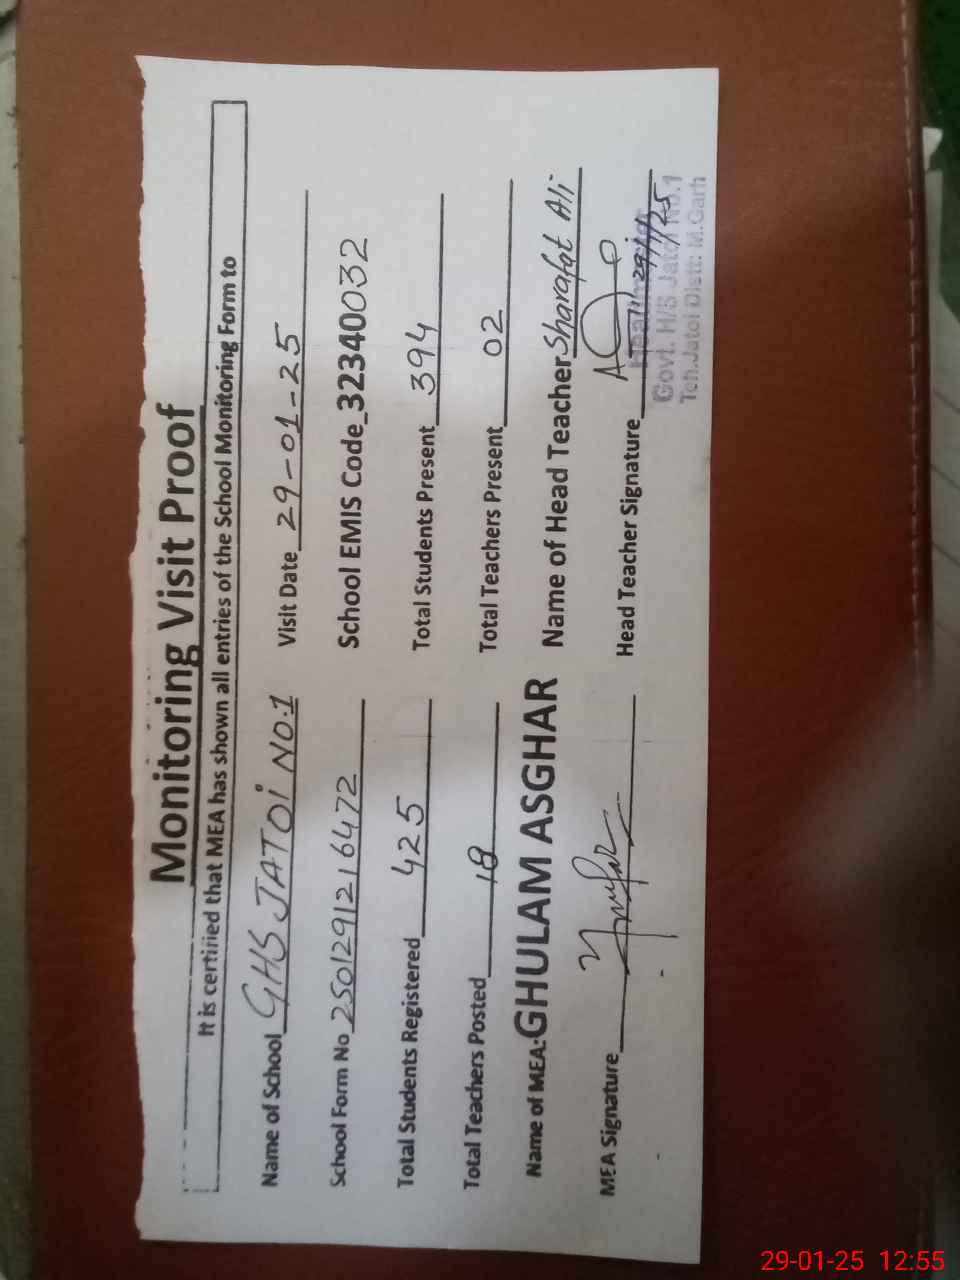 Monitoring Visit Proof
It is certified that MEA has shown all entries of the School Monitoring Form to
Name of School GHS JATOI NO.1 Visit Date 29-01-25
School Form No 2501291216472 School EMIS Code 32340032
Total Students Registered 425 Total Students Present 394
Total Teachers Posted 18 Total Teachers Present 02
Name of MEA: GHULAM ASGHAR Name of Head Teacher Sharafat Ali
MEA Signature Head Teacher Signature
29/1/25
Headmaster
Govt. H/S Jatoi No.1
Teh.Jatoi Distt: M.Garh
29-01-25 12:55